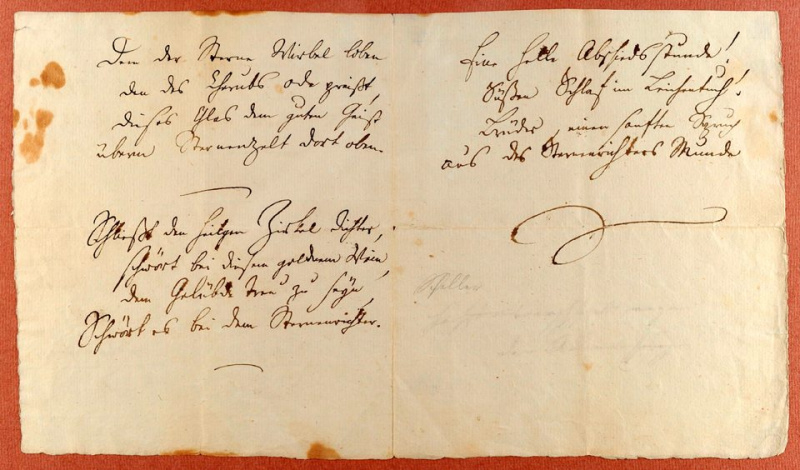 Den der Sterne Wirbel loben
den des Cherubs ode preißt,
dieses Glas dem guten Geist
überm Sternenzelt dort oben.
Schließt den heilgen Zirkel dichter,
schwört bei diesem goldnem Wein,
dem Gelübde treu zu seyn,
Schwört es bei dem Sternenrichter.
Eine helle Abschiedsstunde!
Süßen Schlaf im Leichentuch!
Brüder, einen sanften Spruch
aus des Sternenrichters Munde
Schiller